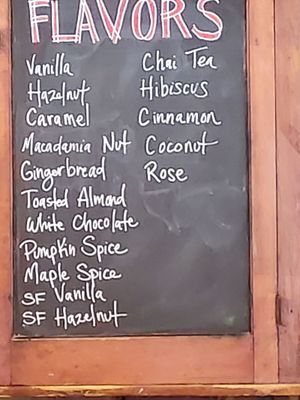 FLAVORS
Vanilla
Hazelnut
Caramel
Macadamia Nut
Gingerbread
Toasted Almond
White Chocolate
Pumpkin Spice
Maple Spice
SF Vanilla
SF Hazelnut
Chai Tea
Hibiscus
Cinnamon
Coconut
Rose